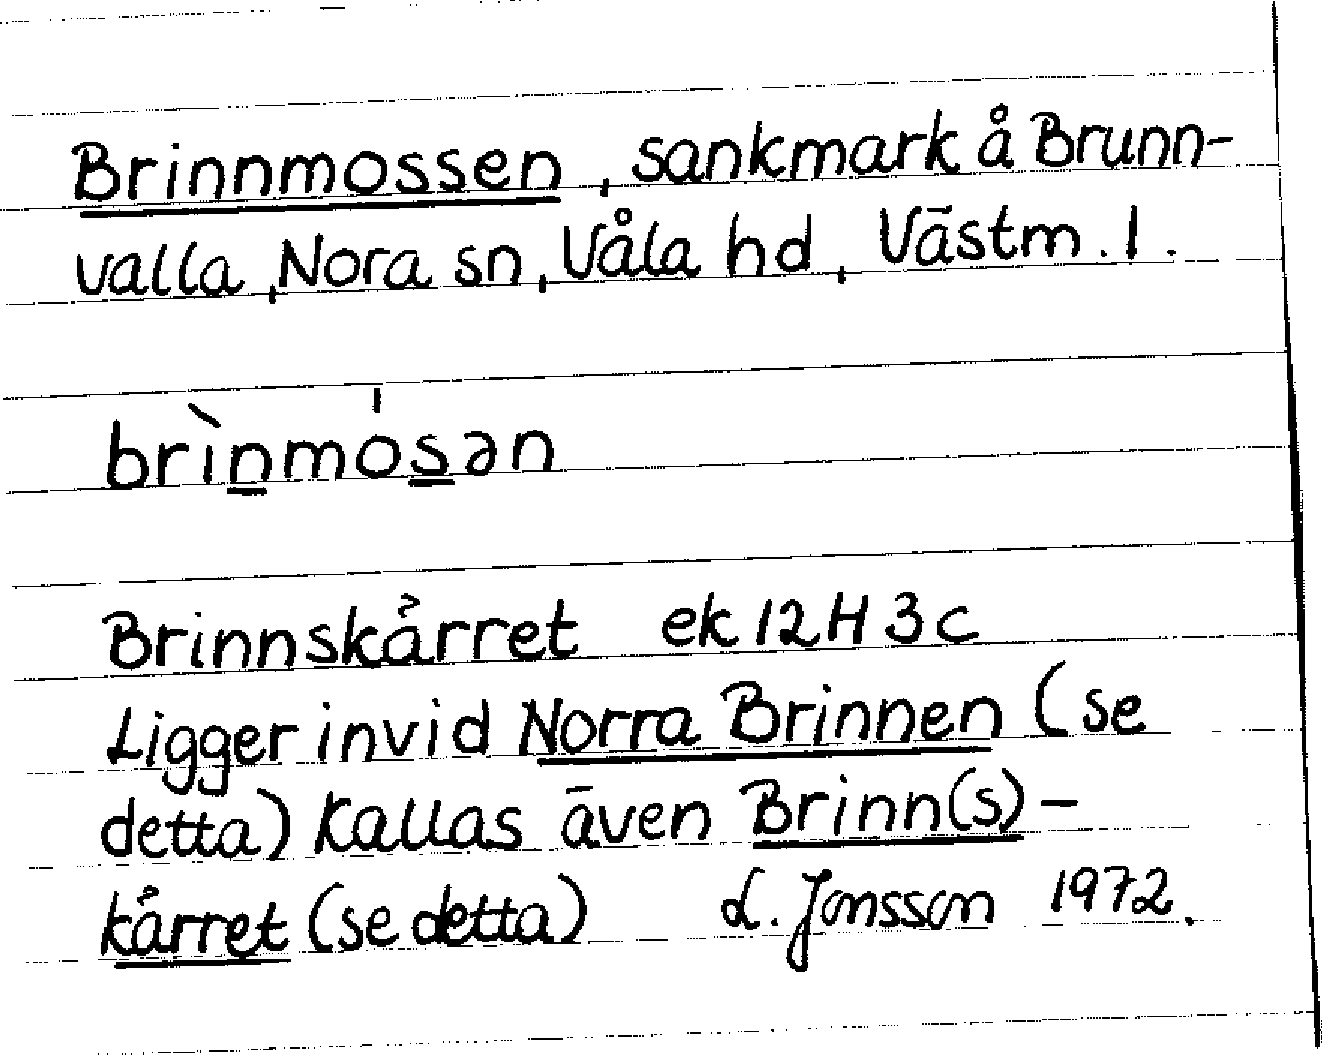 Brinnmossen, sankmark å Brunn-
valla, Nora sn, Våla hd, Västm. l.
brìn̲mós̲ən
Brinnskärret ek 12H 3c
Ligger invid Norra Brinnen (se
detta) Kallas även Brinn(s)-
kärret (se detta) L. Jonsson 1972.